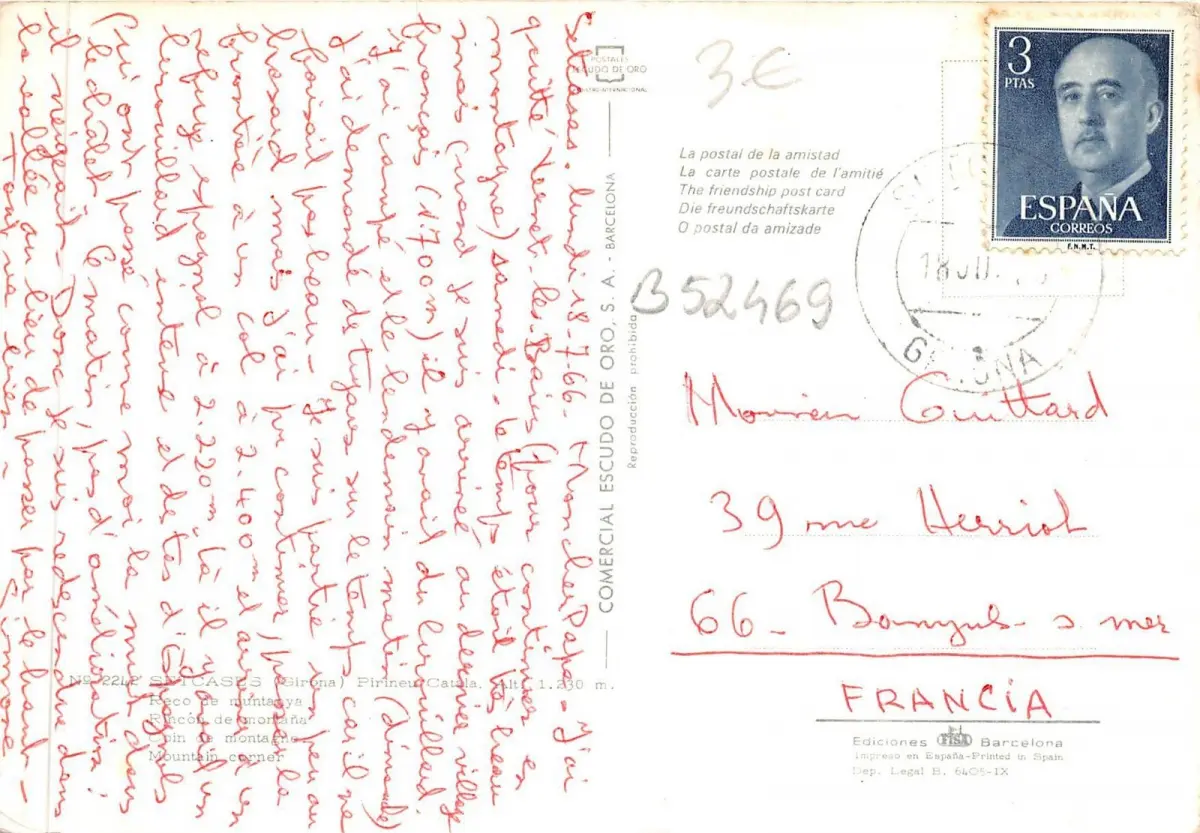 Setcases. lundi 18-7-66. Mon cher Papa - J'ai
quitté Vernet-les-Bains (pour continuer en
montagne) samedi - le temps était très beau
mais quand je suis arrivé au dernier village
français (1.700m) il y avait du brouillard
J'ai campé et le lendemain matin (dimanche)
J'ai demandé des tuyaux sur le temps car il ne
faisait pas beau - Je suis partie un peu au
hasard mais j'ai pu continuer, passer la
frontière à un col à 2.400m et arrivée à un
refuge espagnol à 2.220m là il y avait un
brouillard intense et des tas d'Espagnols
qui ont passé comme moi la nuit dans
le chalet. Ce matin, pas d'amélioration:
il neigeait - Donc je suis redescendue dans
la vallée au lieu de passer par le haut -
Tout va bien - Simone
POSTALES
ESCUDO DE ORO
COMERCIAL ESCUDO DE ORO, S. A. - BARCELONA
Reproducción prohibida
3€
La postal de la amistad
La carte postale de l'amitié
The friendship post card
Die freundschaftskarte
O postal da amizade
B52469
3
PTAS
ESPAÑA
CORREOS
F.N.M.T.
18 JUL
GERONA
Monsieur Guittard
39 rue Herriot
66 - Banyuls s. mer
FRANCIA
Nº 2242 SETCASES (Girona) Pirineu Català. Alt. 1.230 m.
Recó de muntanya
Rincón de montaña
Coin de montagne
Mountain corner
Ediciones FISA Barcelona
Impreso en España-Printed in Spain
Dep. Legal B. 6405-IX